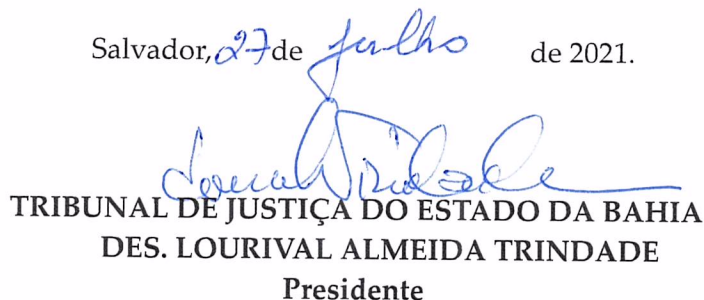 Salvador, 27 de julho de 2021.
Lourival Trindade
TRIBUNAL DE JUSTIÇA DO ESTADO DA BAHIA
DES. LOURIVAL ALMEIDA TRINDADE
Presidente